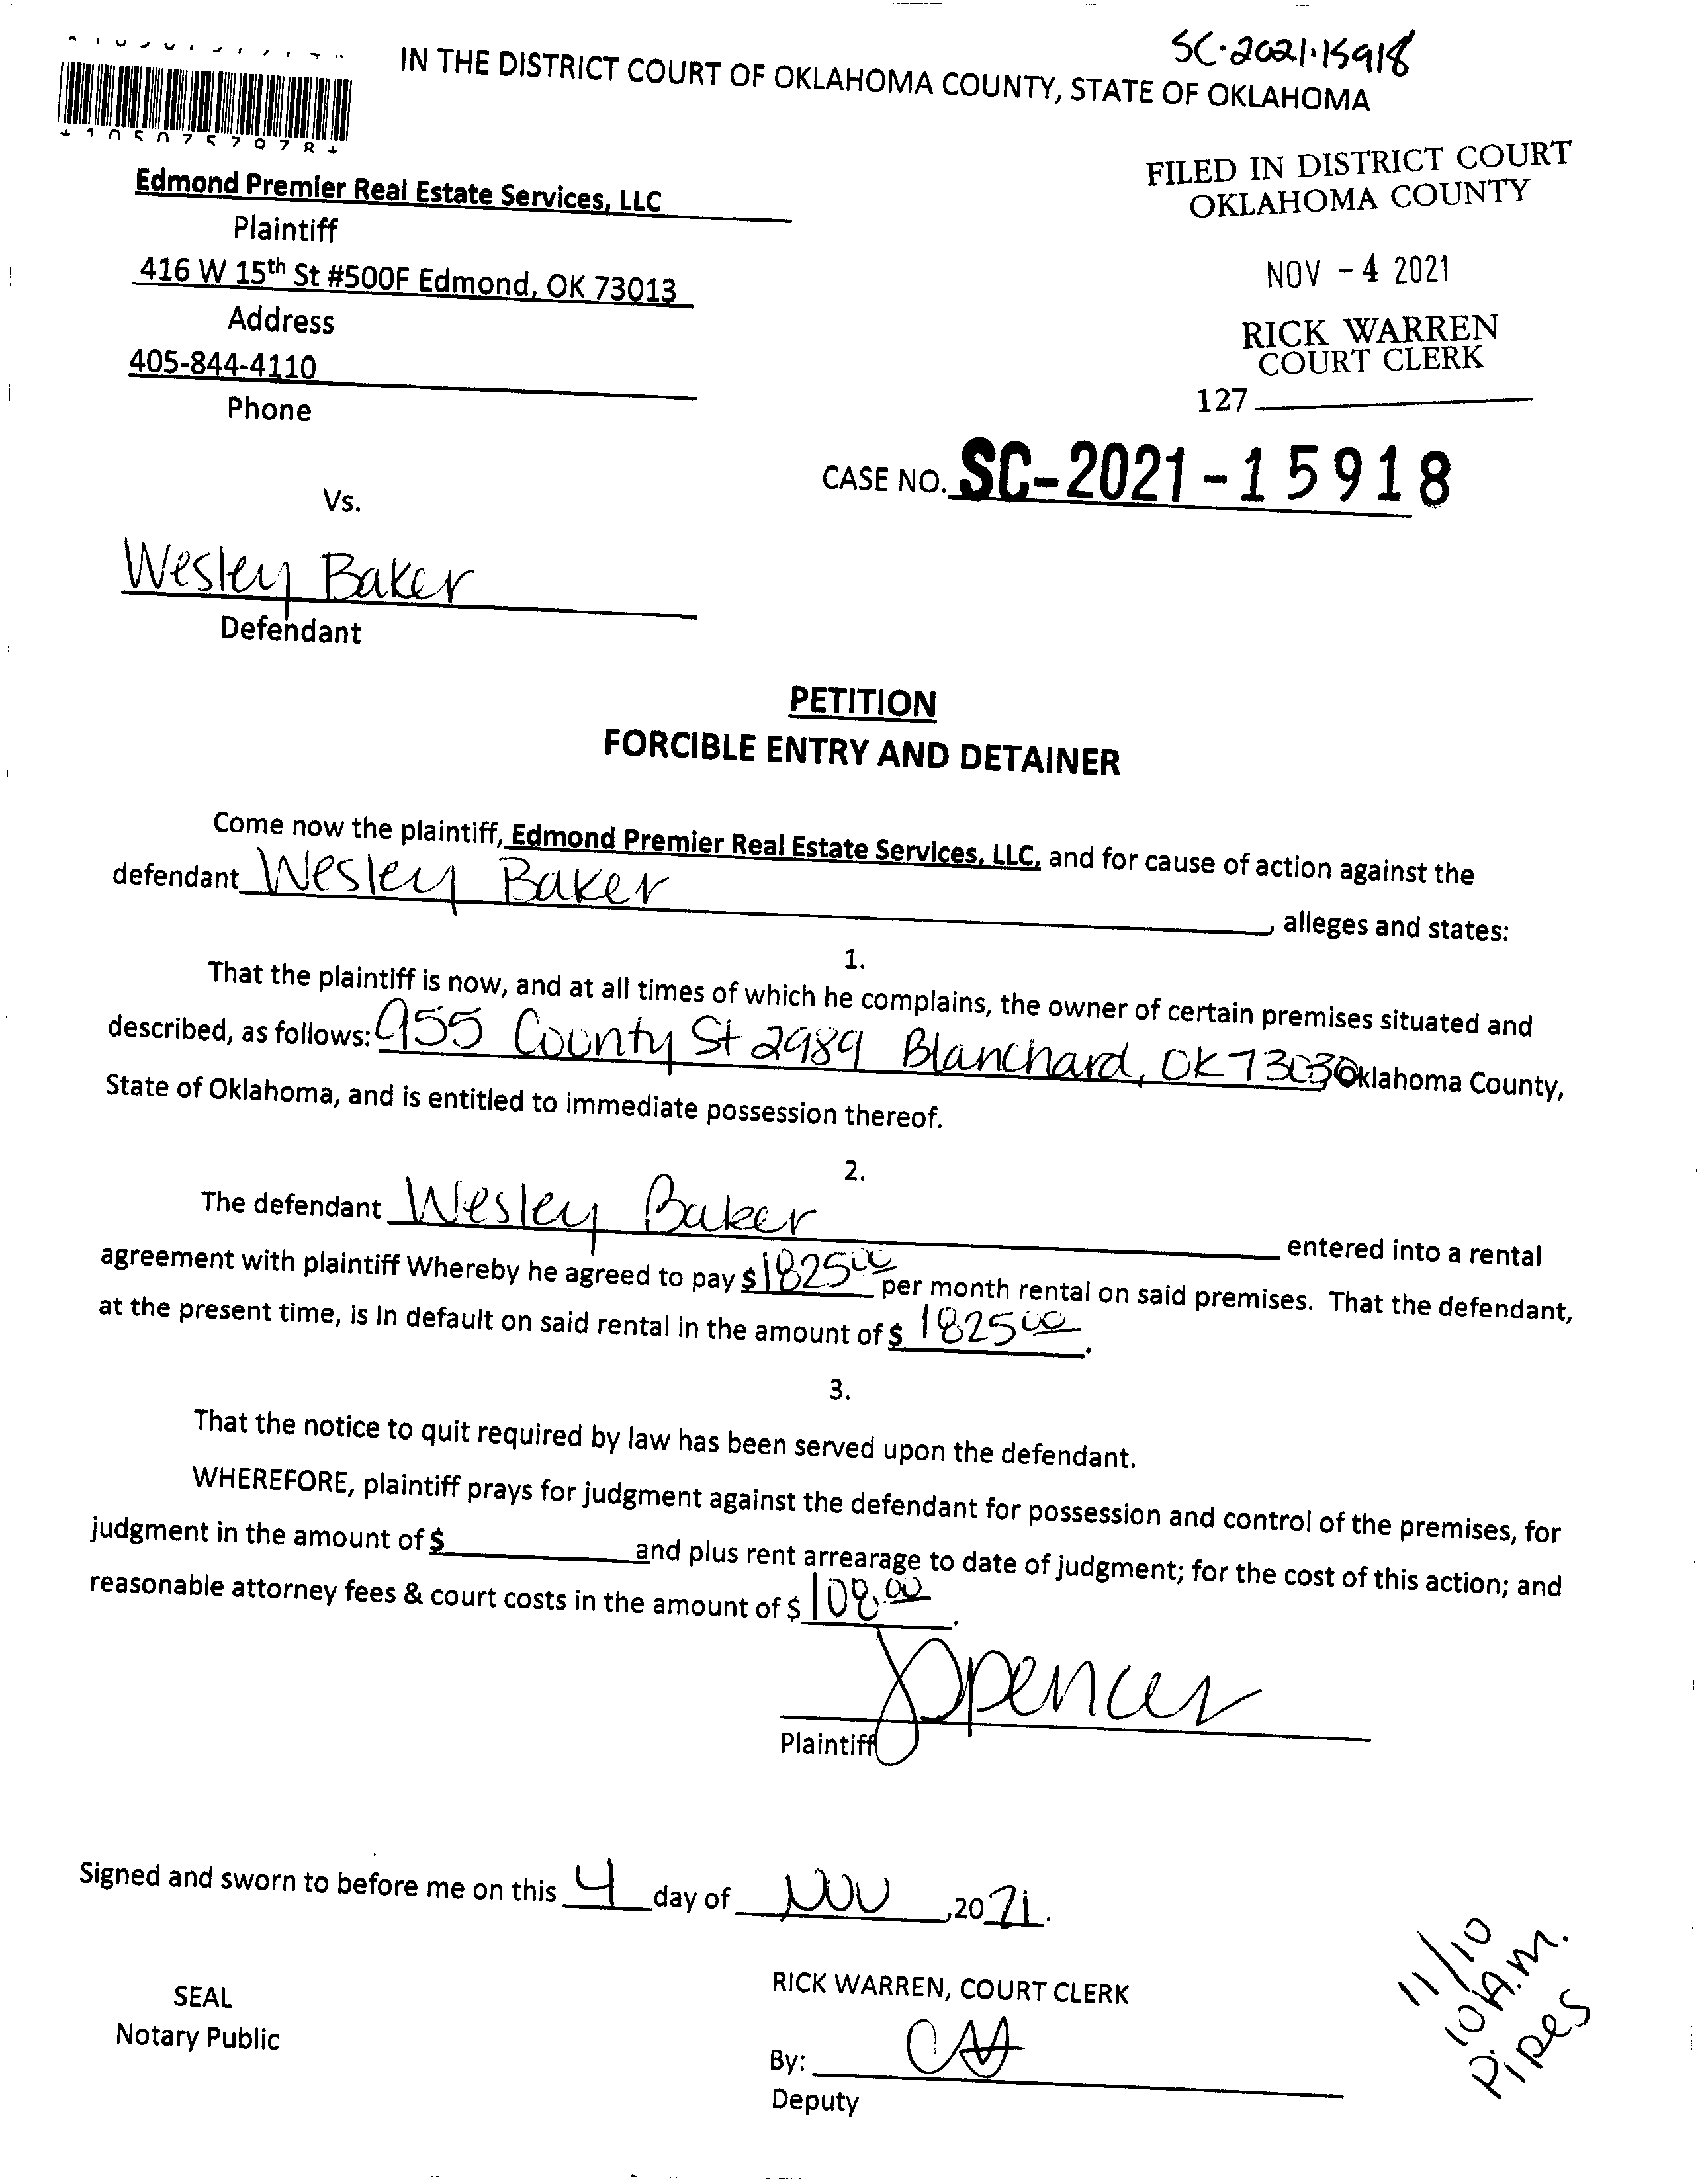 SC-2021-15918
IN THE DISTRICT COURT OF OKLAHOMA COUNTY, STATE OF OKLAHOMA
*1050757978*
FILED IN DISTRICT COURT
OKLAHOMA COUNTY
Edmond Premier Real Estate Services, LLC
Plaintiff
416 W 15th St #500F Edmond, OK 73013
Address
NOV - 4 2021
405-844-4110
Phone
RICK WARREN
COURT CLERK
127
CASE NO. SC-2021-15918
Vs.
Wesley Baker
Defendant
PETITION
FORCIBLE ENTRY AND DETAINER
Come now the plaintiff, Edmond Premier Real Estate Services, LLC, and for cause of action against the
defendant Wesley Baker, alleges and states:
1.
That the plaintiff is now, and at all times of which he complains, the owner of certain premises situated and
described, as follows: 955 County St 2989 Blanchard, OK 73030 Oklahoma County,
State of Oklahoma, and is entitled to immediate possession thereof.
2.
The defendant Wesley Baker entered into a rental
agreement with plaintiff Whereby he agreed to pay $1825 00 per month rental on said premises. That the defendant,
at the present time, is in default on said rental in the amount of $ 1825 00.
3.
That the notice to quit required by law has been served upon the defendant.
WHEREFORE, plaintiff prays for judgment against the defendant for possession and control of the premises, for
judgment in the amount of $ and plus rent arrearage to date of judgment; for the cost of this action; and
reasonable attorney fees & court costs in the amount of $ 108.00.
Spencer
Plaintiff
Signed and sworn to before me on this 4 day of NOV ,2021.
SEAL
Notary Public
RICK WARREN, COURT CLERK
By:
Deputy
11/10
10 A.M.
Pipes